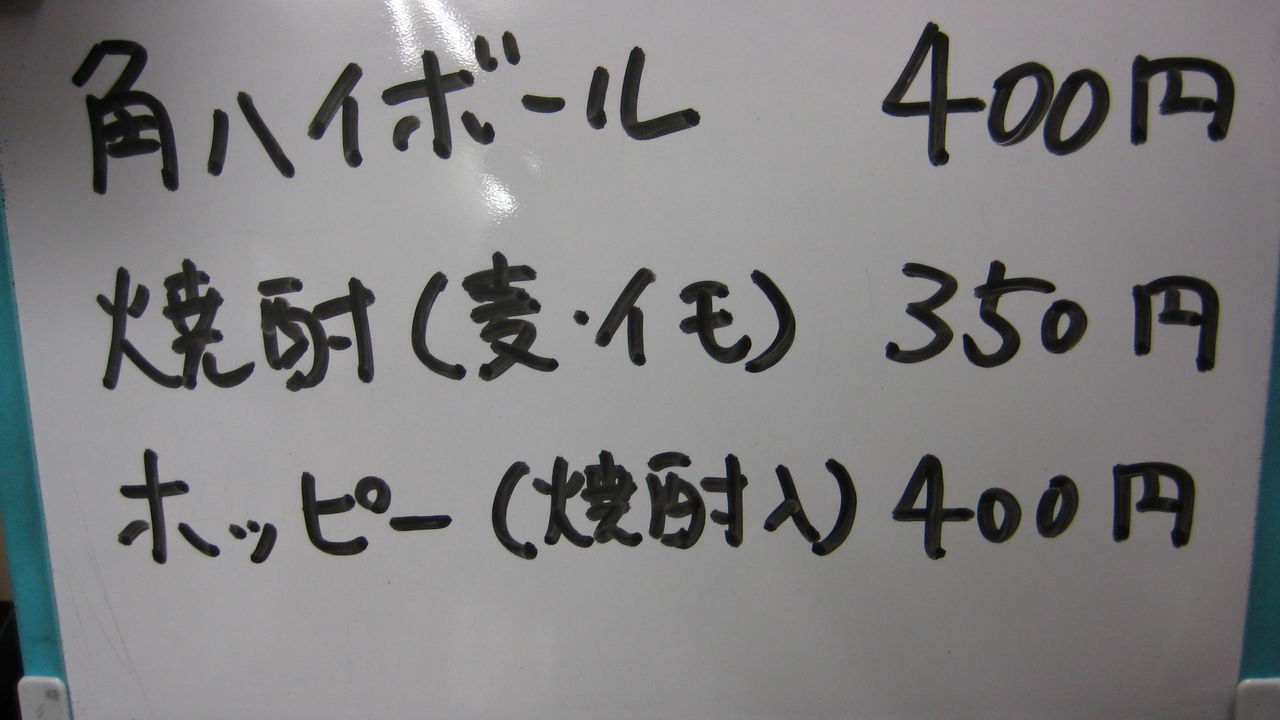 角ハイボール 400円
焼酎(麦・イモ) 350円
ホッピー(焼酎入) 400円